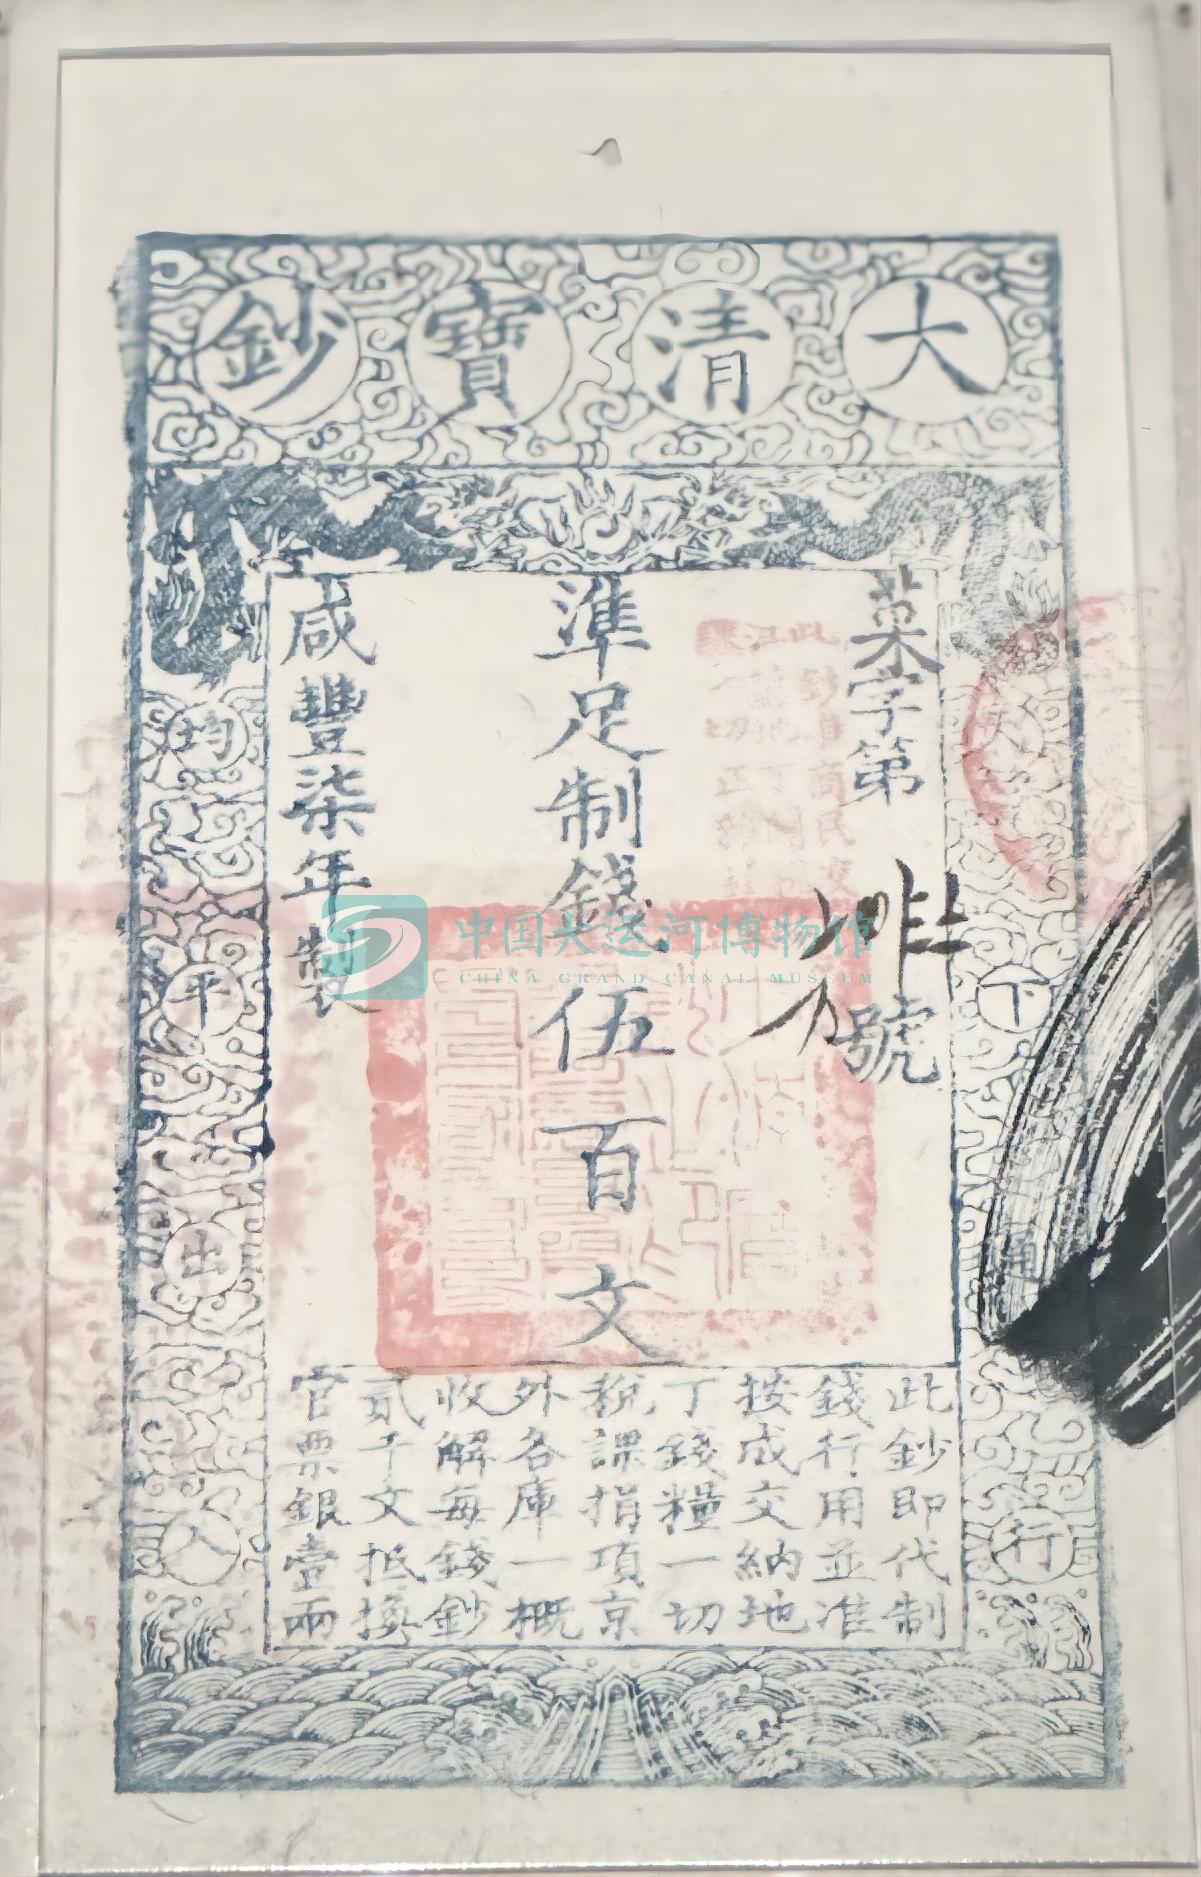 大清寶鈔
菜字第
號
準足制錢伍百文
咸豐柒年製
下
行
均
平
出
入
此鈔即代制
錢行用並准
按成交納地
丁錢糧一切
稅課捐項京
外各庫一概
收解每錢鈔
貳千文抵換
官票銀壹兩
中国大运河博物馆
CHINA GRAND CANAL MUSEUM